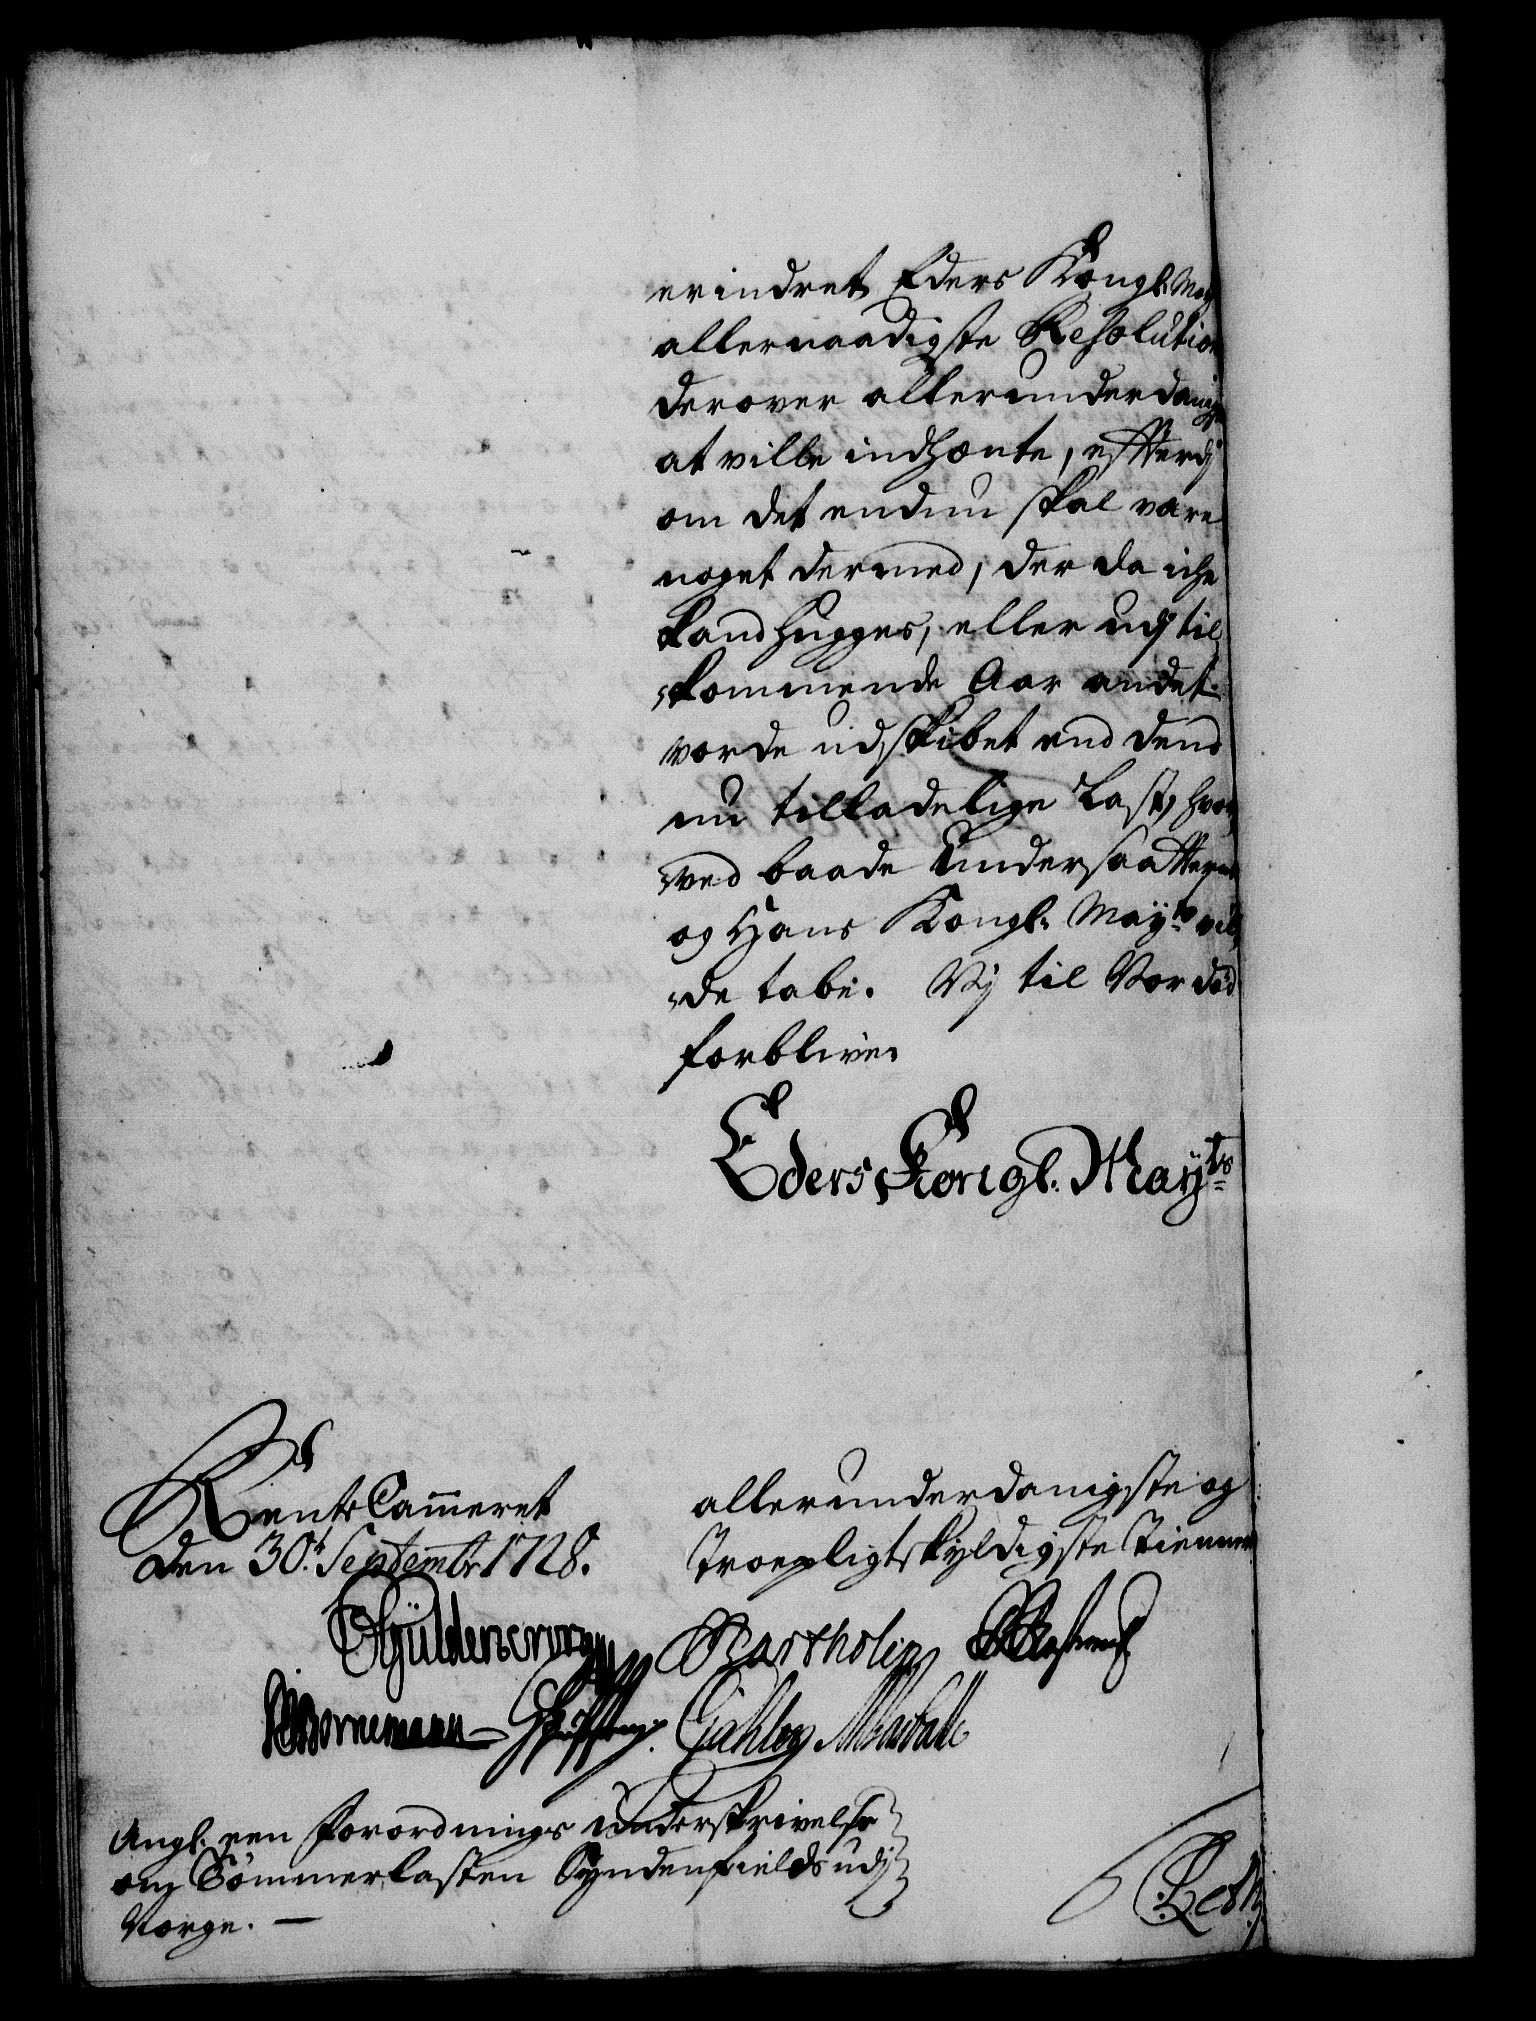 erindret Eders Kongl. May
allernaadigste Resolution
derover allerunderdanigst
at ville indhænte, efterdj
om det endnu skal vare
noget dermed, der da iche
kand hugges, eller udj til
kommende Aar andet
vorde udskibet end dend
nu tilladelige Last, hvor
ved baade Undersaatterne
og Hans Kongl. Mayts vil
de tabe. Vj til Vor Død
forbliver
Eders Kongl. Mayts
RenteCammeret
den 30t Septembr 1728.
allerunderdanigste og
Troepligtskyldigste Tienere
Güldencrone
Bartholin
Bornemann
Angl. een Forordnings Underskrivelse
om Tömmerlasten Syndenfields udj
Norge.